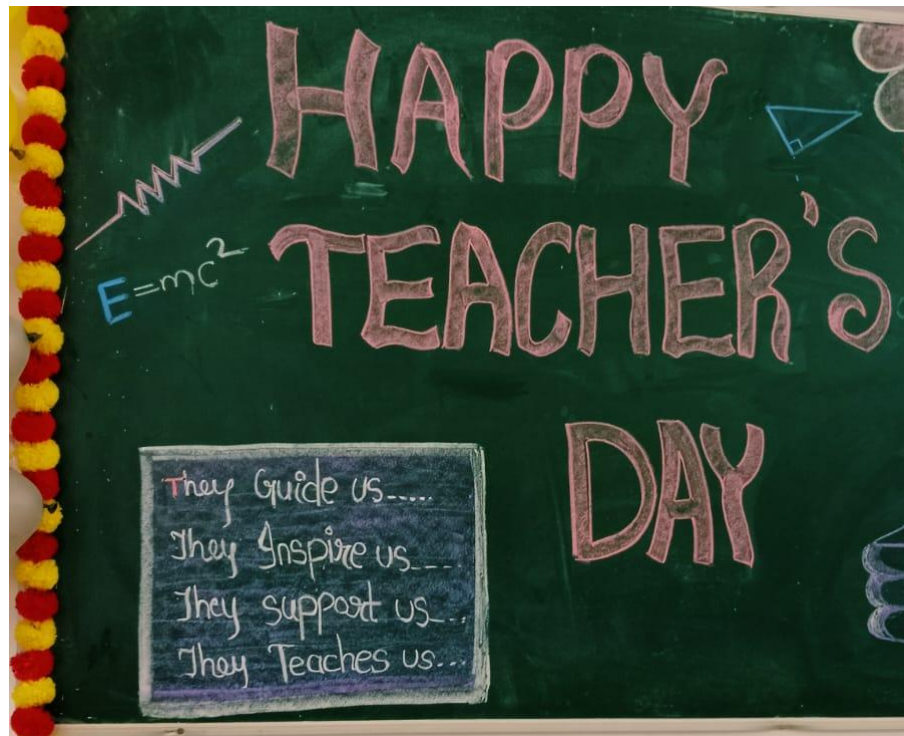 HAPPY
TEACHER'S
DAY
E=mc²
They Guide us.....
They Inspire us....
They support us....
They Teaches us...